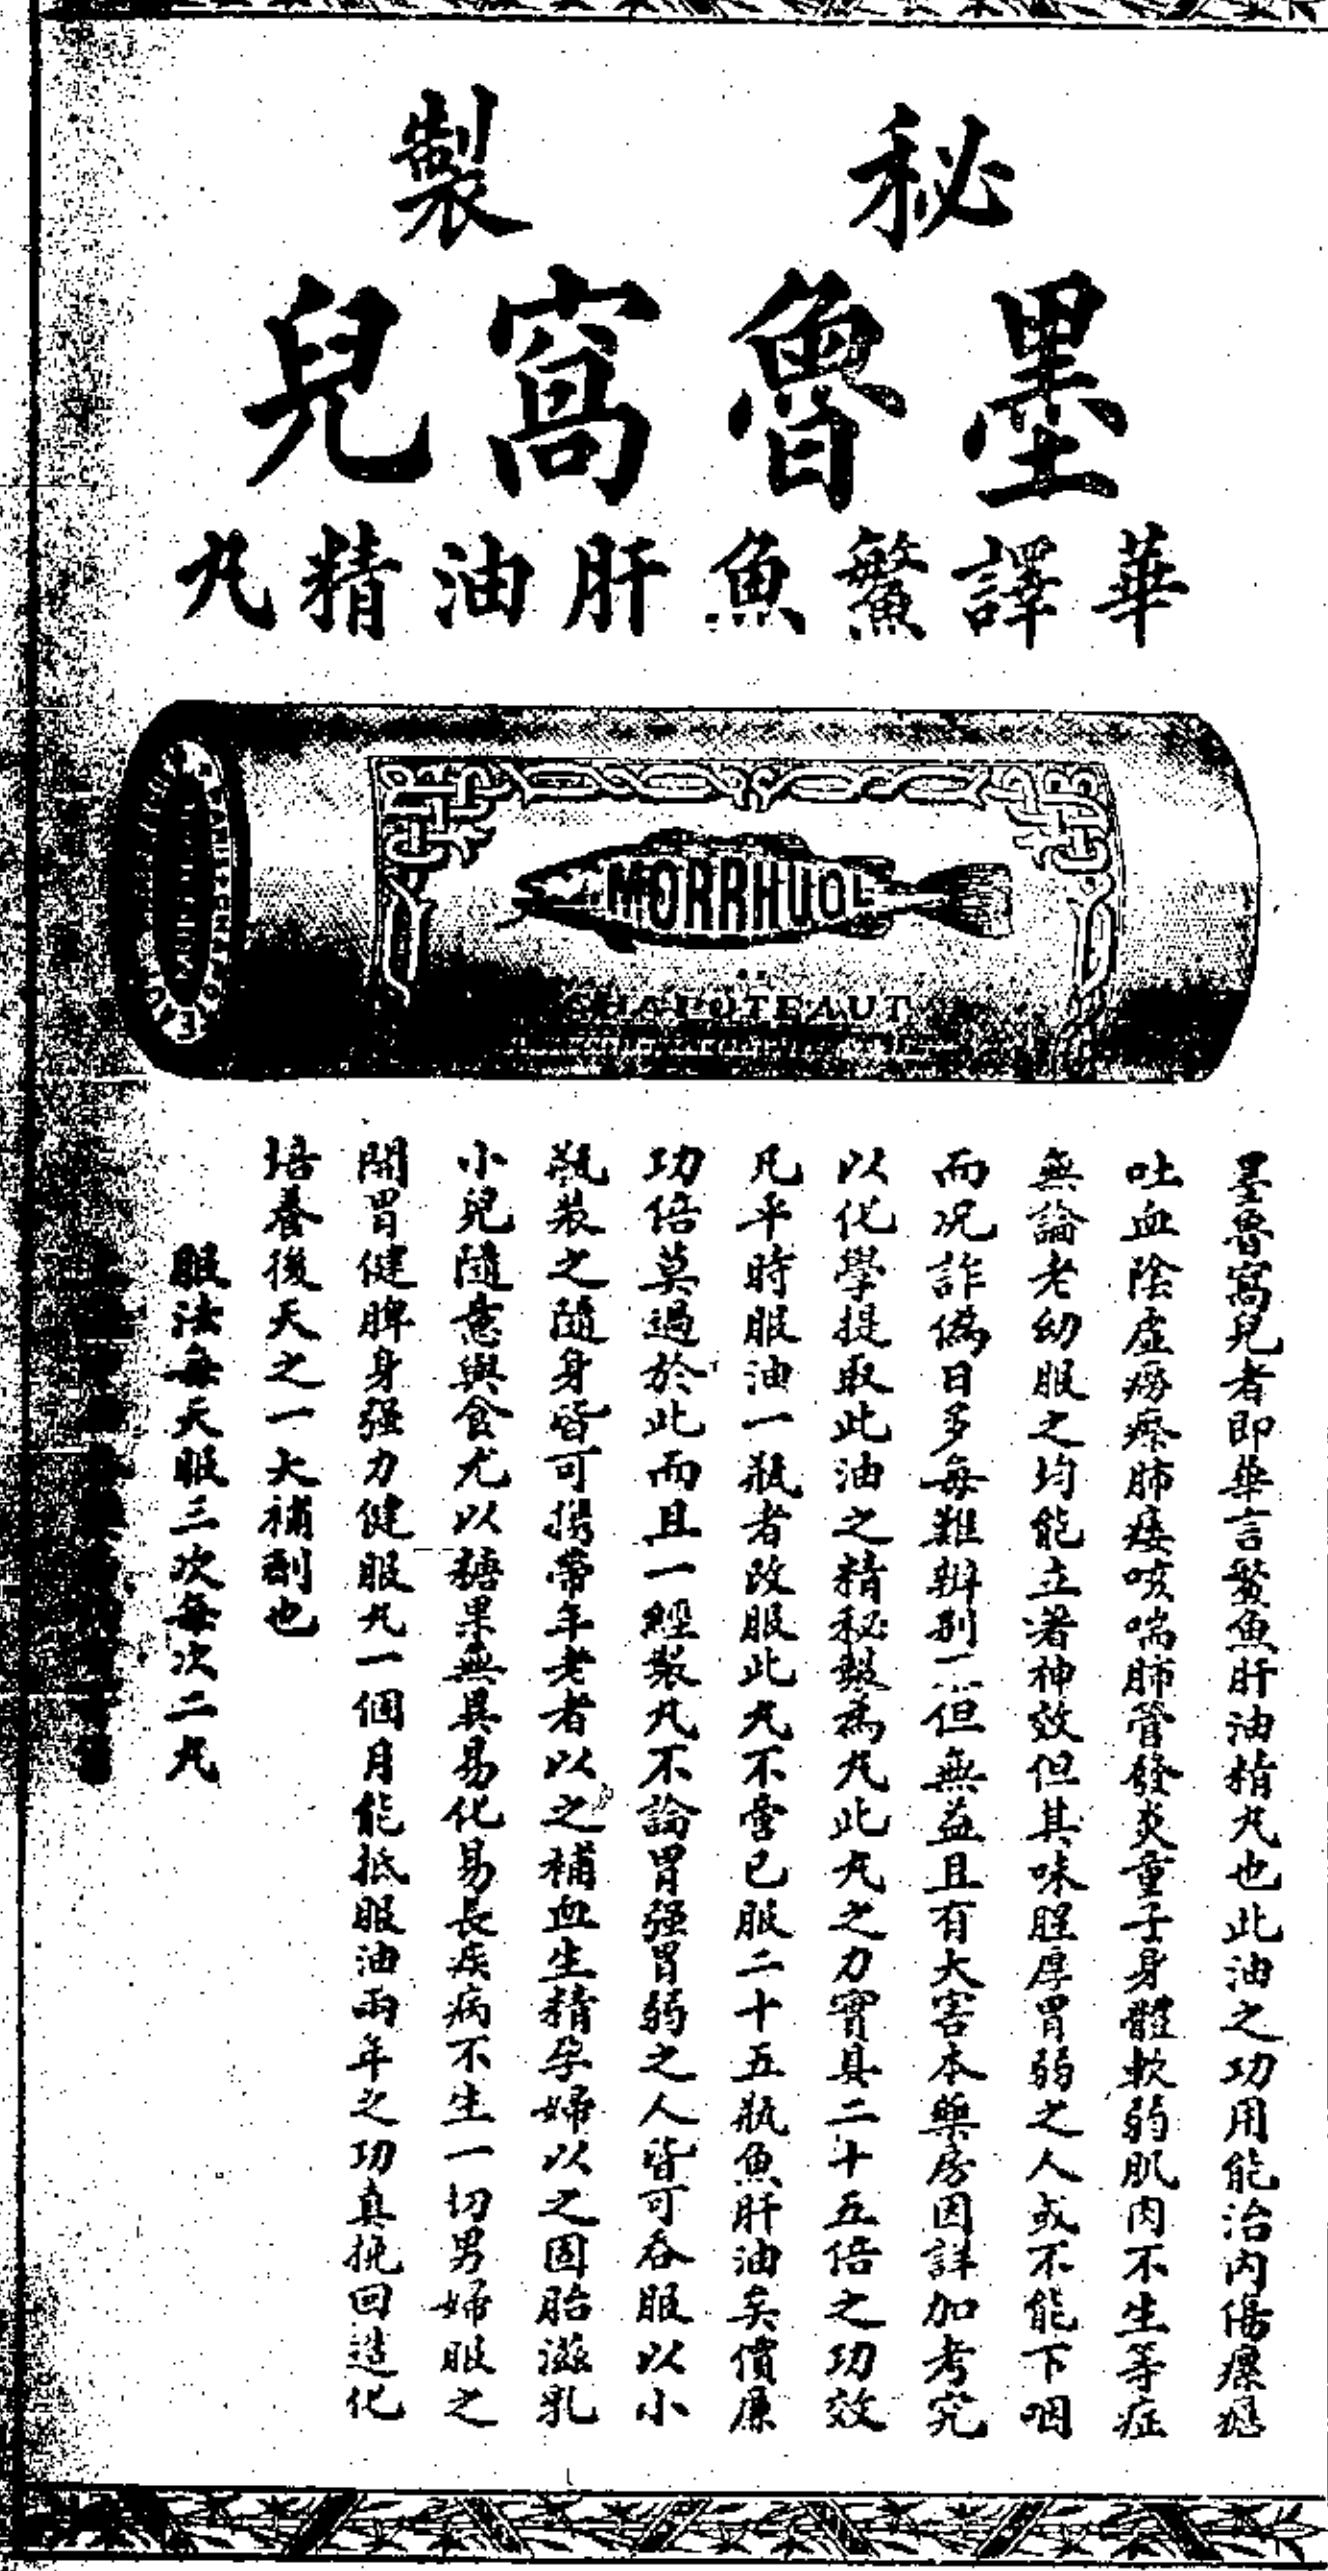 秘製
墨魯窩兒
華譯鰵魚肝油精丸
MORRHUOL
CHAPOTEAUT
墨魯窩兒者即華言鰵魚肝油精丸也此油之功用能治內傷瘰癧
吐血陰虛癆瘵肺痿咳喘肺管發炎童子身體軟弱肌肉不生等症
無論老幼服之均能立著神效但其味腥厚胃弱之人或不能下咽
而况詐偽日多每難辦別不但無益且有大害本藥房因詳加考究
以化學提取此油之精秘製為丸此丸之力實具二十五倍之功效
凡平時服油一瓶者改服此丸不啻已服二十五瓶魚肝油矣價廉
功倍莫過於此而且一經製丸不論胃强胃弱之人皆可吞服以小
瓶裝之隨身皆可携帶年老者以之補血生精孕婦以之固胎滋乳
小兒隨意與食尤以糖果無異易化易長疾病不生一切男婦服之
開胃健脾身强力健服丸一個月能抵服油兩年之功真挽回造化
培養後天之一大補劑也
服法每天服三次每次二丸